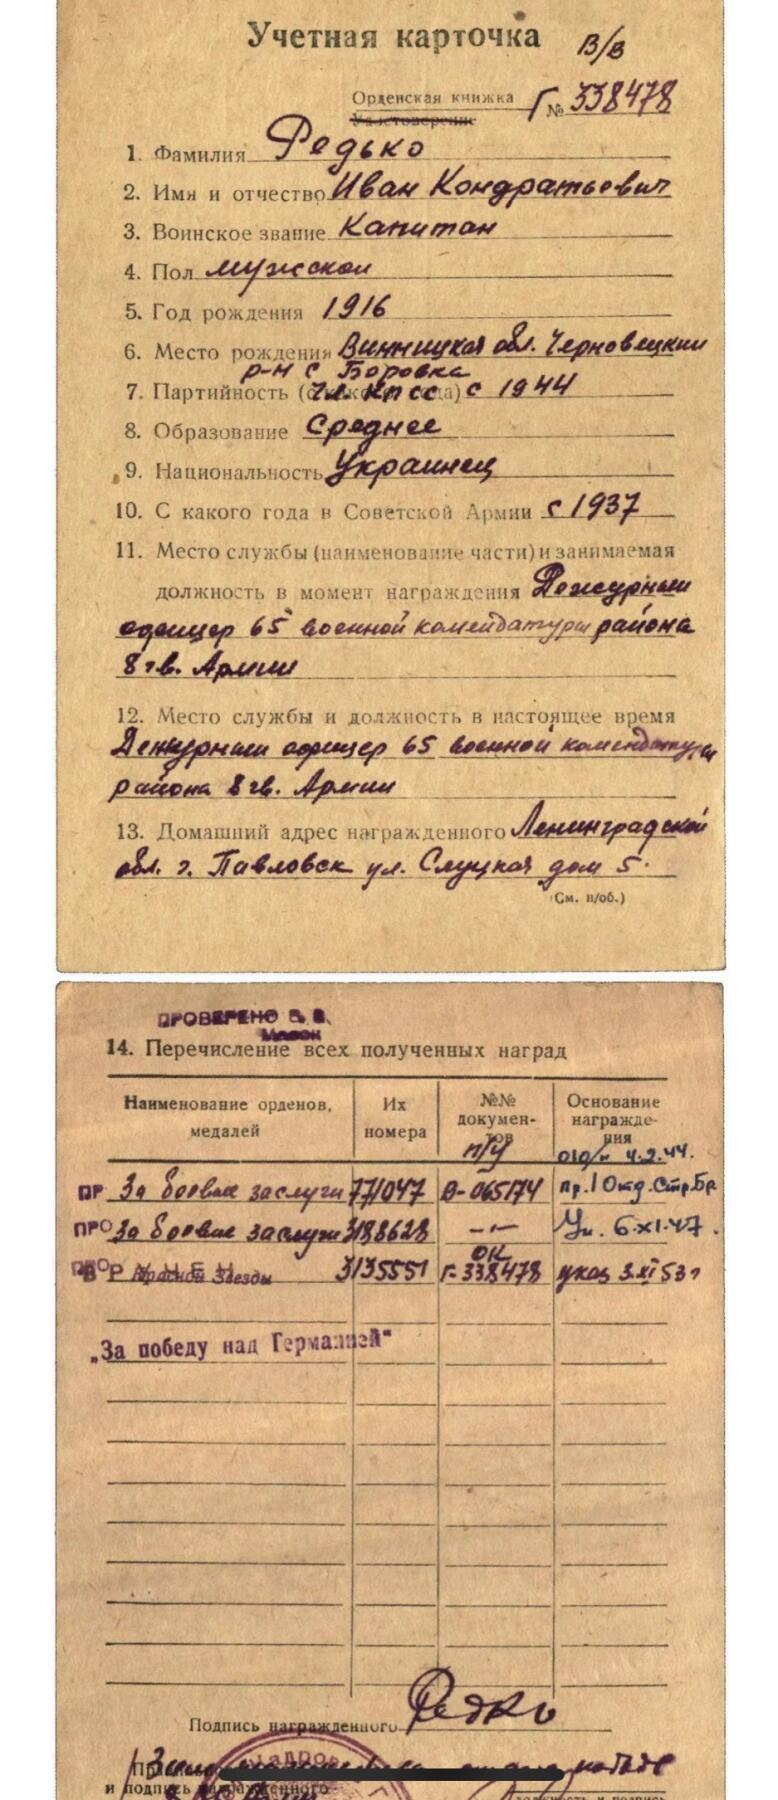 Учетная карточка
В/В
Орденская книжка
Удостоверение
Г № 338478
1. Фамилия Редько
2. Имя и отчество Иван Кондратьевич
3. Воинское звание Капитан
4. Пол мужской
5. Год рождения 1916
6. Место рождения Винницкая обл. Черновецкий
р-н с Боровка
7. Партийность чл. КПСС с 1944
8. Образование Среднее
9. Национальность Украинец
10. С какого года в Советской Армии с 1937
11. Место службы (наименование части) и занимаемая
должность в момент награждения Дежурный
офицер 65 военной комендатуры района
8 гв. Армии
12. Место службы и должность в настоящее время
Дежурный офицер 65 военной комендатуры
района 8 гв. Армии
13. Домашний адрес награжденного Ленинградской
обл. г. Павловск ул. Слуцкая дом 5.
(См. н/об.)
ПРОВЕРЕНО
14. Перечисление всех полученных наград
Наименование орденов, медалей
Их номера
№№ документов
Основание награждения
п/у 4.2.44.
ПР За боевые заслуги 771047 В-065174 пр. 1 Отд. Стр. Бр
ПРО За боевые заслуги 3188628 —"— Ук. 6.XI.47.
ОК
ВРУЧЕН Красной Звезды 3135551 Г-338478 указ 3.XI 53г
„За победу над Германией"
Подпись награжденного Редко
и подпись награжденного
должность и подпись